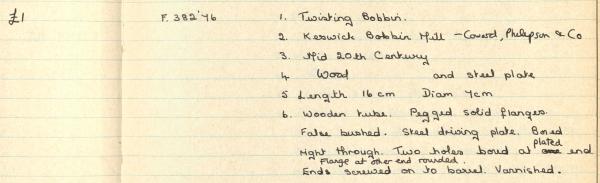 £1 F.382'76 1. Twisting Bobbin.
2. Keswick Bobbin Mill - Coward, Philipson & Co
3. Mid 20th Century
4. Wood and steel plate
5 Length 16 cm Diam 7cm
6. Wooden tube. Pegged solid flanges.
False bushed. Steel driving plate. Bored
right through. Two holes bored at plated end
Flange at other end rounded.
Ends screwed on to barrel. Varnished.